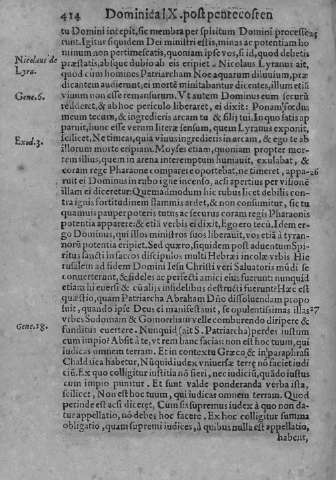 414 Dominica IX. post pentecosten
tu Domini incepit, sic membra per spiritum Domini processe-
runt. Igitur siquidem Dei ministri estis, minas ac potentiam ho
minum non pertimescatis, quoniam ipse vos, si id, quod debetis
Nicolaus de
Lyra.
præstatis, absque dubio ab eis eripiet. Nicolaus Lyranus ait,
quod cum homines Patriarcham Noe aquarum diluuium, præ
dicantem audirent, ei mortē minitabantur dicentes, illum etiā
Gene. 6.
viuum non esse remansurum. Vt autem Dominus eum securū
redderet, & ab hoc periculo liberaret, ei dixit: Ponam fœdus
meum tecum, & ingredieris arcam tu & filij tui. In quo satis ap
paruit, hunc esse verum literæ sensum, quem Lyranus exponit,
scilicet, Ne timeas, quia viuus ingredieris in arcam, & ego te ab
Exod. 3.
illorum morte eripiam. Moysi etiam, quoniam propter mor-
tem illius, quem in arena interemptum humauit, exulabat, &
coram rege Pharaone comparere oportebat, ne timeret, appa- 26
ruit ei Dominus in rubo igne incenso, ac si apertius per visionē
illam ei diceretur: Quemadmodum hic rubus licet debilis con-
tra ignis fortitudinem flammis ardet, & non consumitur, sic tu
quamuis pauper poteris tutus ac securus coram regis Pharaonis
potentia apparere: & etiā verbis ei dixit, Ego ero tecū. Idem er-
go Dominus, qui illos ministros suos liberauit, vos etiā à tyran-
norū potentia eripiet. Sed quæro, siquidem post aduentum Spi-
ritus sancti in sacros discipulos multi Hebræi incolæ vrbis Hie
rusalem ad fidem Domini Iesu Christi veri Saluatoris mūdi se
conuerterant, & fideles ac perfecti amici eius fuerunt: nunquid
etiam hi euersi & cū alijs infidelibus destructi fuerunt? Hæc est
quæstio, quam Patriarcha Abraham Dño dissoluendam propo
suit, quando ipse Deus ei manifestauit, se opulentissimas illas 27
vrbes Sodomam & Gomorham velle comburendo diripere &
Gene. 18.
funditus euertere. Nunquid (ait S. Patriarcha) perdes iustum
cum impio? Absit à te, vt rem hanc facias: non est hoc tuum, qui
iudicas omnem terram. Et in contextu Græco & in paraphrasi
Chaldaica habetur, Nūquid iudex vniuersæ terræ nō faciet iudi
ciū. Ex quo colligitur iustitia nō fieri, nec iudiciū, quādo iustus
cum impio punitur. Et sunt valde ponderanda verba ista,
scilicet, Non est hoc tuum, qui iudicas omnem terram. Quod
perinde est ac si diceret, Cum sis supremus iudex à quo non da-
tur appellatio, nō debes hoc facere. Ex hoc colligitur summa
obligatio, quam supremi iudices, à quibus nulla est appellatio,
habent,